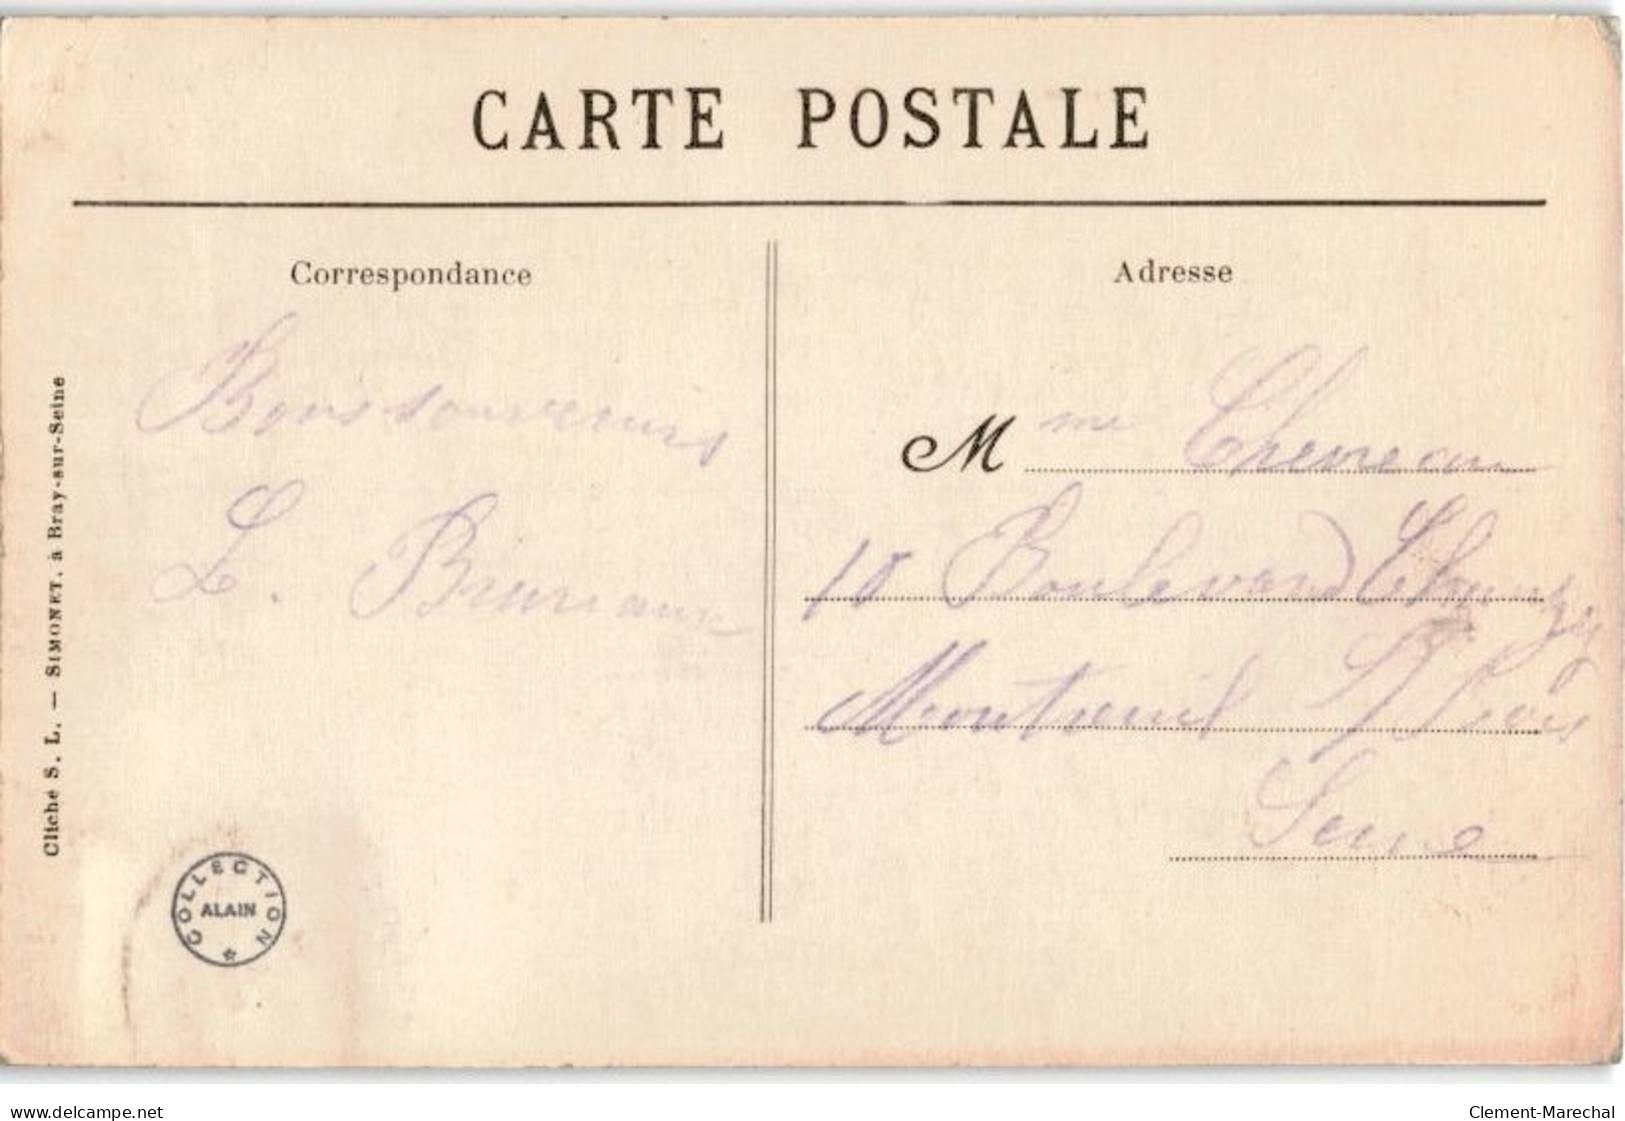 CARTE POSTALE
Correspondance
Bons souvenirs
L.
Cliché S. L. — SIMONET, à Bray-sur-Seine
COLLECTION ALAIN
Adresse
Mme
10 Boulevard
Montreuil S/ Bois
Seine
delcampe.net
Clement-Marechal